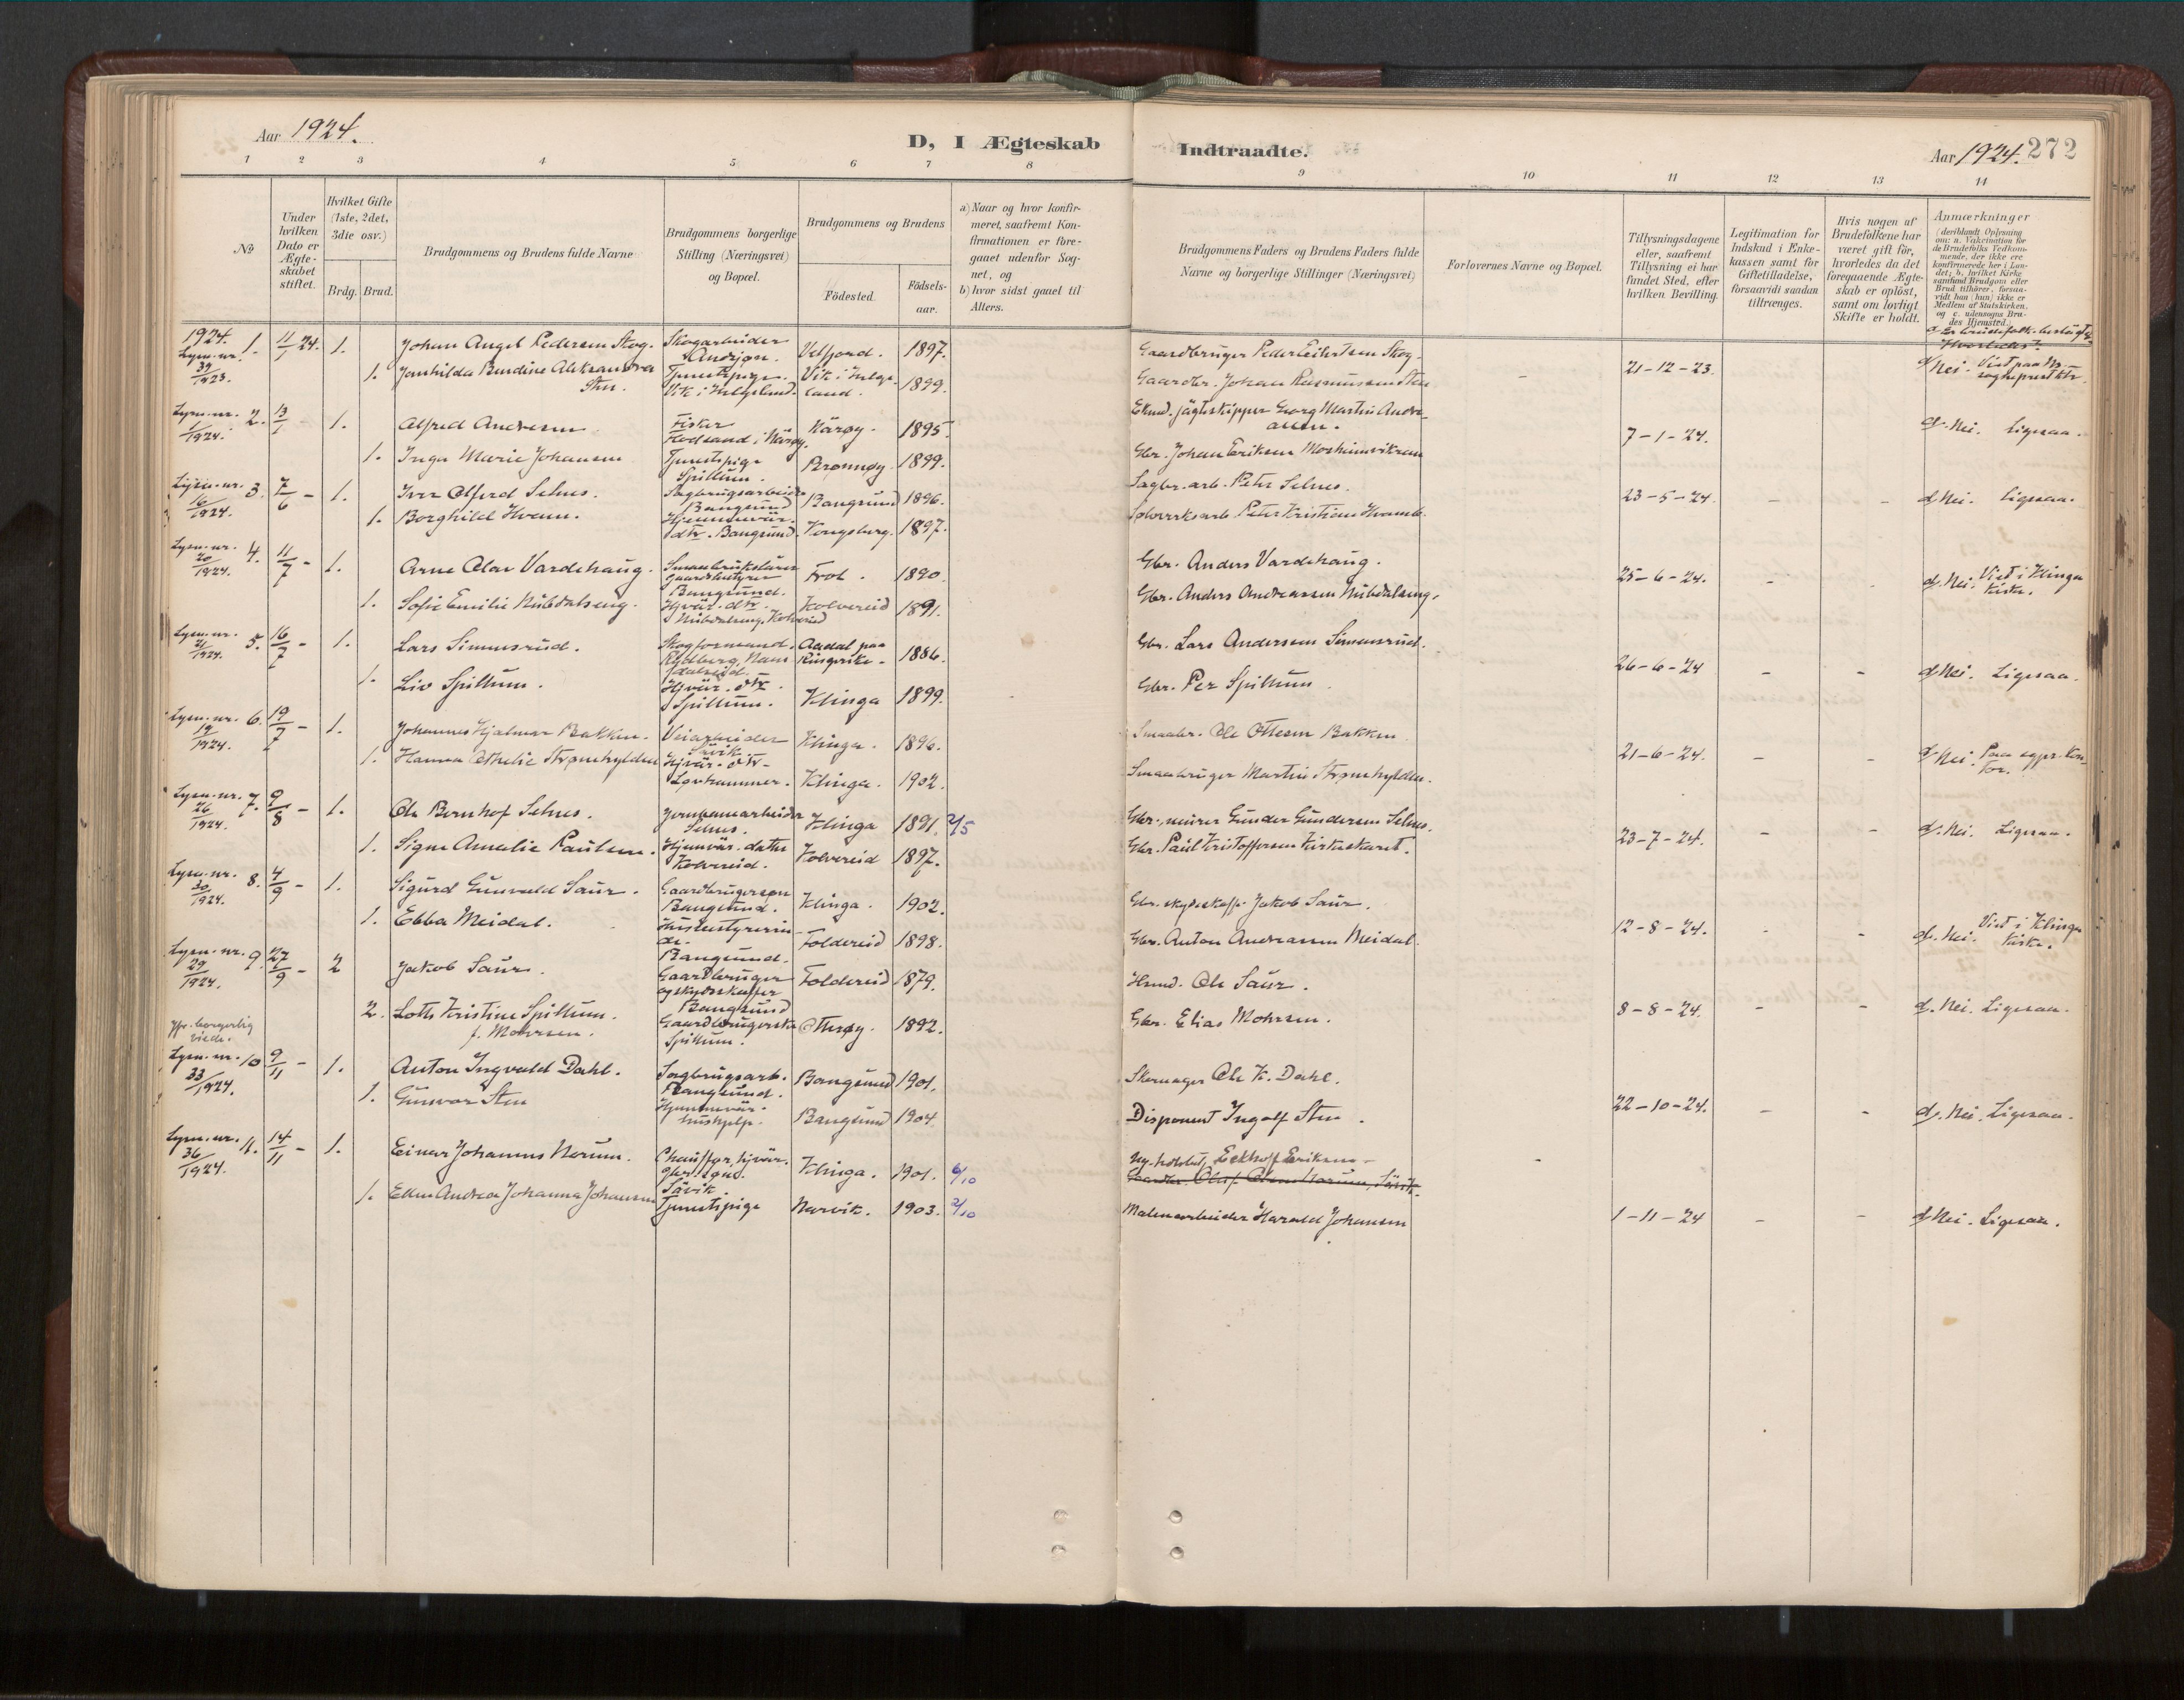 Aar 1924.
D, I Ægteskab Indtraadte.
Aar 1924. 272
1 2 3 4 5 6 7 8 9 10 11 12 13 14
No
Under hvilken Dato er Ægteskabet stiftet.
Hvilket Gifte (1ste, 2det, 3die osv.)
Brdg. Brud.
Brudgommens og Brudens fulde Navne
Brudgommens borgerlige Stilling (Næringsvei) og Bopæl.
Brudgommens og Brudens
Födested.
Födsels-aar.
a) Naar og hvor konfirmeret, saafremt Konfirmationen er foregaaet udenfor Sognet, og
b) hvor sidst gaaet til Alters.
Brudgommens Faders og Brudens Faders fulde Navne og borgerlige Stillinger (Næringsvei)
Forlovernes Navne og Bopæl.
Tillysningsdagene eller, saafremt Tillysning ei har fundet Sted, efter hvilken Bevilling.
Legitimation for Indskud i Ænkekassen samt for Giftetilladelse, forsaavidt saadan tiltrænges.
Hvis nogen af Brudefolkene har været gift för, hvorledes da det foregaaende Ægteskab er oplöst, samt om lovligt Skifte er holdt.
Anmærkninger
(deriblandt Oplysning om: a. Vakcination for de Brudefolks Vedkommende, der ikke ere konfirmerede her i Landet; b. hvilket Kirkesamfund Brudgom eller Brud tilhörer, forsaavidt han (hun) ikke er Medlem af Statskirken, og c. udensogns Brudes Hjemsted.)
1924.
Lysn. nr. 39/1923. 1. 11/1 24. 1. Johan Angel Pedersen Skog. Skogarbeider Velfjord. 1897. Gaardbruger Peder Eilertsen Skog. 21-12-23.
1. Janhilda Berdine Aleksandra Sten. Tjenestepige. Vik i Helgeland. Vik i Helgeland. 1899. Gaardbr. Johan Rasmussen Sten
d/ Nei.
Lysn. nr. 1/1924. 2. 13/1 1. Alfred Andresen Fisker Flodsand i Nærøy. Nærøy. 1895. Georg Martin Andreassen. 7-1-24. d. Nei. Ligesaa.
1. Inga Marie Johansen Tjenestepige Spillum. Brønnøy. 1899. Gbr. Johan Eriksen
Lysn. nr. 16/1924. 3. 7/6 - 1. Iver Alferd Selnes. Sagbrugsarbeider Bangsund Bangsund 1896. Sagbr. arb. Peter Selnes. 23-5-24. - - d/ Nei. Ligesaa.
1. Borghild Hvam. Hjemmevær. dtr. Bangsund. Kongsberg. 1897. Sølvverksarb. Peter Kristian Hvamb.
Lysn. nr. 20/1924. 4. 11/7 - 1. Arne Olav Vardehaug. Smaabrukslærer gaardbestyrer Bangsund. Frol. 1890. Gbr. Anders Vardehaug. 25-6-24. - - d/ Nei. Viet i Klinga kirke.
1. Sofie Emilie Nubdalseng. Hjvær. dtr. Nubdalseng, Kolvereid Kolvereid 1891. Gbr. Anders Andreassen Nubdalseng.
Lysn. nr. 21/1924. 5. 16/7 - 1. Lars Simensrud. Skogformand. Aadal paa Ringerike. 1886. Gbr. Lars Andersen Simensrud. 26-6-24 - - d/ Nei. Ligesaa.
1. Liv Spillum. Hjvær. dtr. Spillum. Klinga 1899. Gbr. Per Spillum
Lysn. nr. 19/1924. 6. 19/7 - 1. Johannes Hjalmar Bakken. Veiarbeider Sævik Klinga. 1896. Smaabr. Ole Ottesen Bakken 21-6-24. - - d/ Nei.
1. Hanna Athelie Strømhylden Hjvær. dtr. Klinga. 1902. Smaabruger Martin Strømhylden.
Lysn. nr. 26/1924. 7. 9/8 - 1. Ole Bernhof Selnes. Jernbanearbeider Selnes. Klinga 1891. 2/5 Gbr., murer Gunder Gundersen Selnes. 23-7-24. - - d/. Nei. Ligesaa.
1. Signe Amalie Paulsen. Hjemvær. datter Kolvereid. Kolvereid 1897. Gbr. Paul Kristoffersen Kirkeskaret.
Lysn. nr. 30/1924. 8. 4/9 - 1. Sigurd Gunvald Saur. Gaardbrugersøn Bangsund. Klinga. 1902. Gbr. skydsskaffr Jakob Saur. 12-8-24. - - d/. Nei. Viet i Klinga kirke.
1. Ebba Meidal. Husbestyrerinde. Bangsund. Foldereid 1898. Gbr. Anton Andreasen Meidal
Lysn. nr. 29/1924. 9. 27/9 - 2 Jakob Saur. Gaardbruger og skydsskaffer Bangsund Foldereid 1879. Hmd. Ole Saur. 8-8-24. - - d. Nei. Ligesaa.
2. Lotte Kristine Spillum. f. Mohrsen. Gaardbrugerske Spillum. Otterøy. 1892. Gbr. Elias Mohrsen.
Lysn. nr. 33/1924. 10 9/11 - 1. Anton Ingvald Dahl. Sagbrugsarb. Bangsund. Bangsund 1901. Skomager Ole K. Dahl. 22-10-24. - - d/. Nei. Ligesaa.
1. Gunvor Sten Hjemmevær. hushjelp. Bangsund 1904. Disponent Ingolf Sten.
Lysn. nr. 36/1924. 11. 14/11 - 1. Einar Johannes Norum. Chauffør, hjvær. Sævik Klinga. 1901. 6/10 Eriksen 1-11-24 - - d/ Nei. Ligesaa.
1. Ellen Andrea Johanna Johansen Tjenestepige Narvik. 1903. 2/10 Malmarbeider Harald Johansen